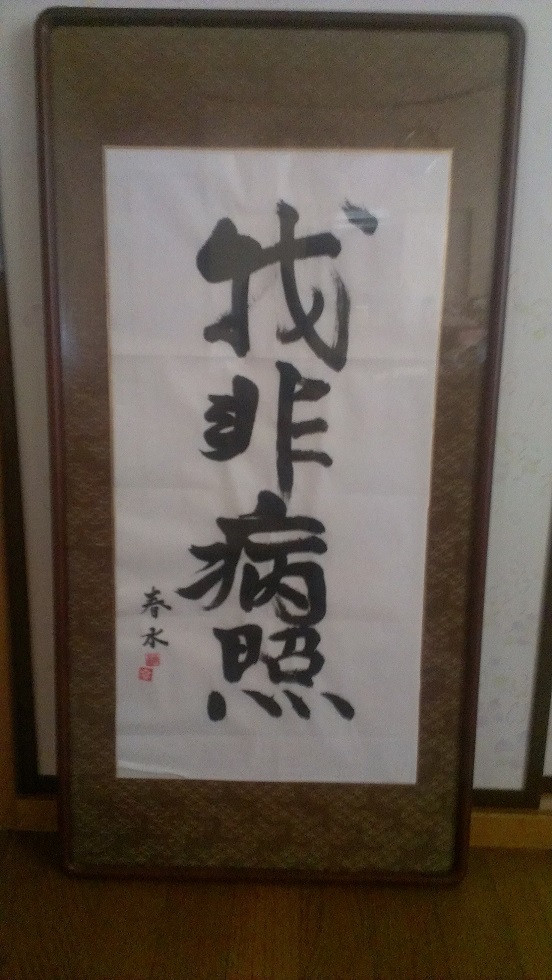 我非病照
春水